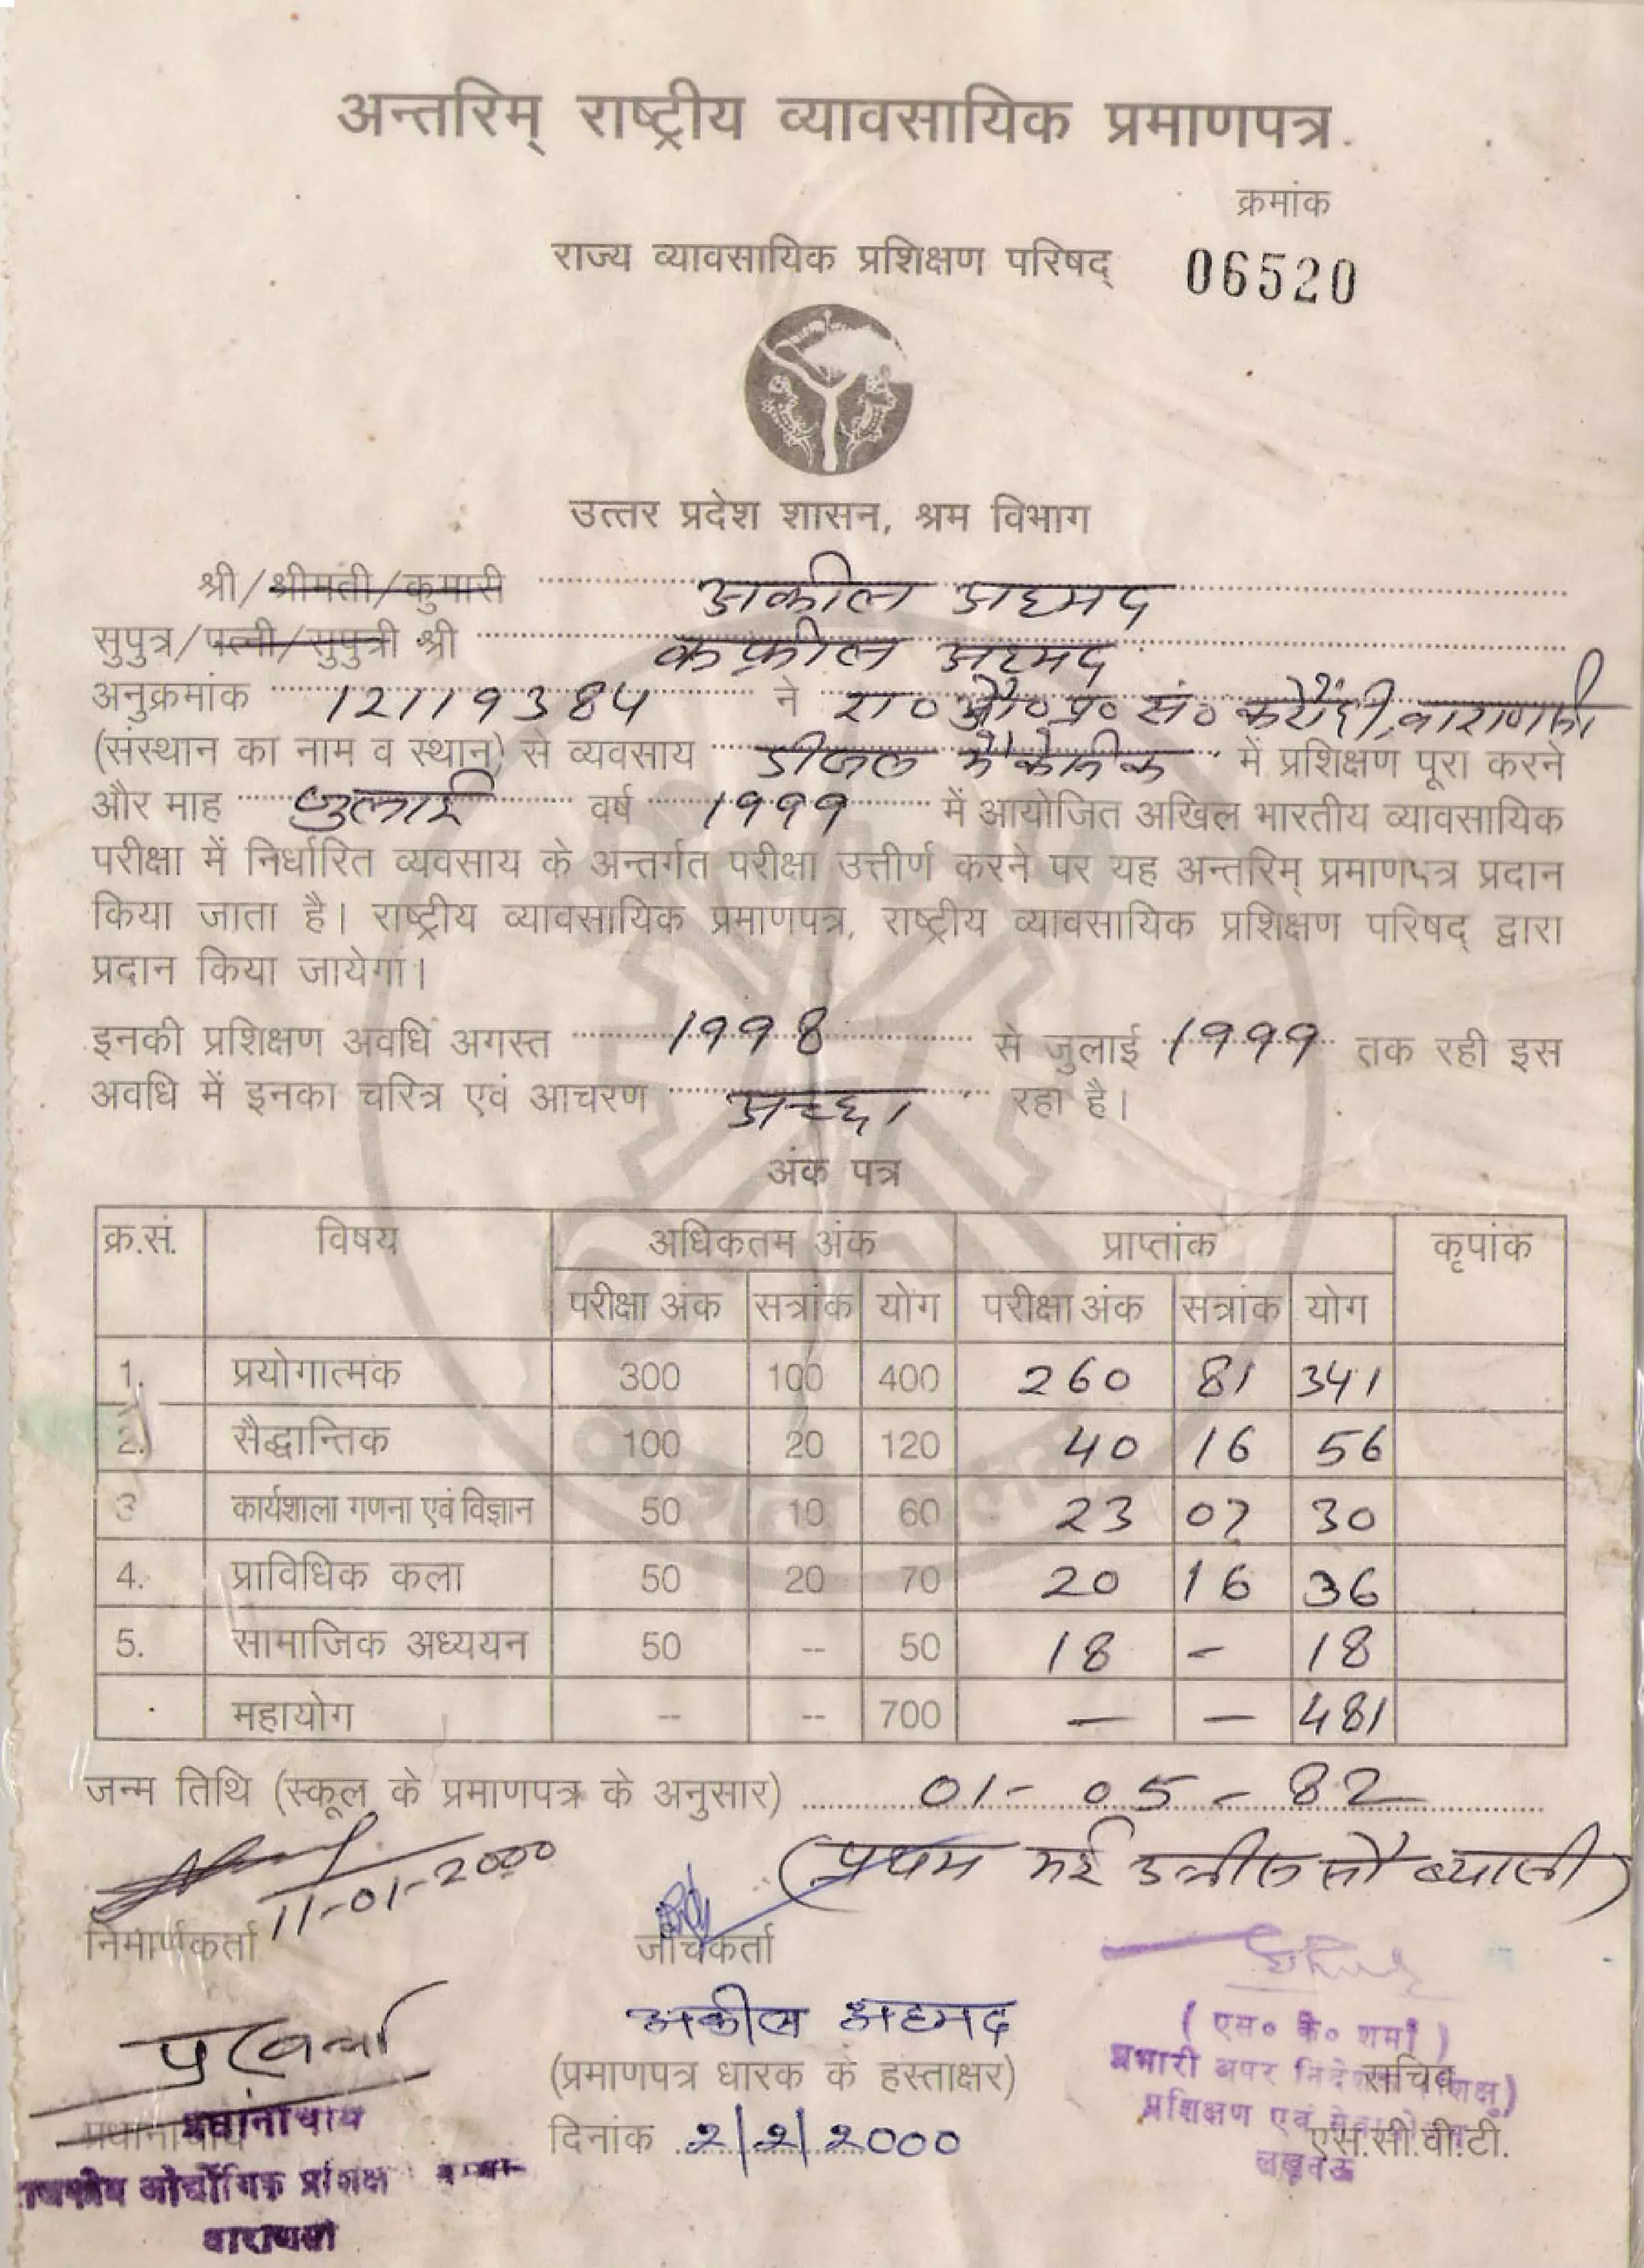 अन्तरिम् राष्ट्रीय व्यावसायिक प्रमाणपत्र
क्रमांक
राज्य व्यावसायिक प्रशिक्षण परिषद् 06520
उत्तर प्रदेश शासन, श्रम विभाग
श्री/श्रीमती/कुमारी अकील अहमद
सुपुत्र/पत्नी/सुपुत्री श्री कफील अहमद
अनुक्रमांक 12119384 ने रा० औ० प्र० सं० करौंदी, वाराणसी
(संस्थान का नाम व स्थान) से व्यवसाय डीजल मैकेनिक में प्रशिक्षण पूरा करने
और माह जुलाई वर्ष 1999 में आयोजित अखिल भारतीय व्यावसायिक
परीक्षा में निर्धारित व्यवसाय के अन्तर्गत परीक्षा उत्तीर्ण करने पर यह अन्तरिम् प्रमाणपत्र प्रदान
किया जाता है। राष्ट्रीय व्यावसायिक प्रमाणपत्र, राष्ट्रीय व्यावसायिक प्रशिक्षण परिषद् द्वारा
प्रदान किया जायेगा।
इनकी प्रशिक्षण अवधि अगस्त 1998 से जुलाई 1999 तक रही इस
अवधि में इनका चरित्र एवं आचरण अच्छा रहा है।
अंक पत्र
क्र.सं. विषय अधिकतम अंक प्राप्तांक कृपांक
परीक्षा अंक सत्रांक योग परीक्षा अंक सत्रांक योग
1. प्रयोगात्मक 300 100 400 260 81 341
2. सैद्धान्तिक 100 20 120 40 16 56
3 कार्यशाला गणना एवं विज्ञान 50 10 60 23 07 30
4. प्राविधिक कला 50 20 70 20 16 36
5. सामाजिक अध्ययन 50 -- 50 18 - 18
महायोग -- -- 700 — — 481
जन्म तिथि (स्कूल के प्रमाणपत्र के अनुसार) 01-05-82
(प्रथम मई उन्नीस सौ ब्यासी)
11-01-2000
निमार्णकर्ता जाँचकर्ता
अकील अहमद
(एस० के० शर्मा)
(प्रमाणपत्र धारक के हस्ताक्षर) सचिव
प्रभारी अपर निदेशक शिक्षु)
प्रधानाचार्य
प्रधानाचार्य
प्रशिक्षण एवं
दिनांक 2/2/2000 एस.सी.वी.टी.
लखनऊ
राजकीय औद्योगिक प्रशिक्षण
वाराणसी